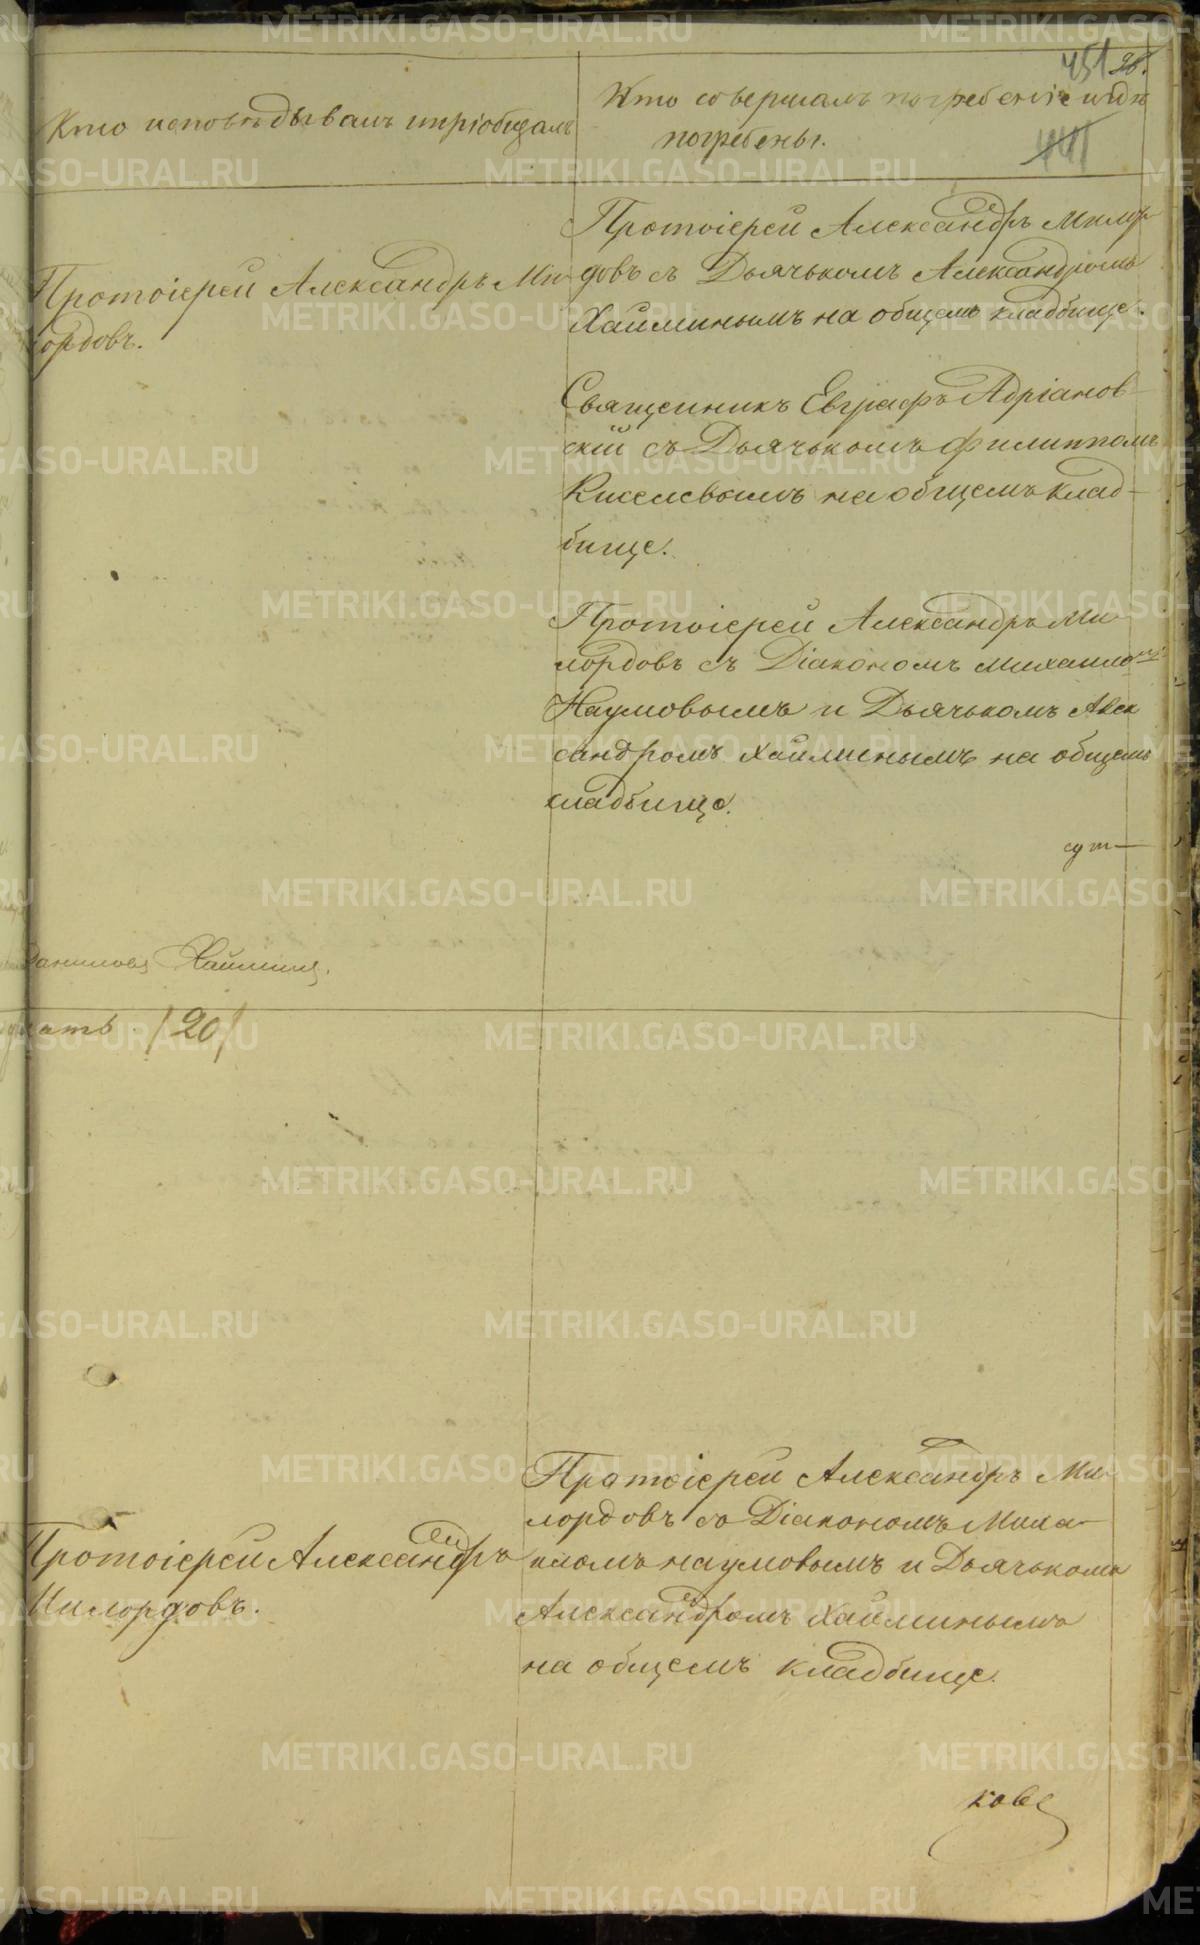 451 26.
441
Кто исповѣдывалъ и пріобщалъ
Кто совершалъ погребеніе и гдѣ
погребены.
Протоіерей Александръ Ми-
лордовъ.
Протоіерей Александръ Милор-
довъ съ Дьячькомъ Александромъ
Хайминымъ на общемъ кладбище.
Священникъ Евграфъ Адріанов-
скій съ Дьячькомъ Филиппомъ
Киселевымъ на общемъ клад-
бище.
Протоіерей Александръ Ми-
лордовъ съ Діакономъ Михаиломъ
Наумовымъ и Дьячькомъ Алек
сандромъ Хайминымъ на общемъ
кладбище.
Данилова Хаймина.
/20/
Протоіерей Александръ
Милордовъ.
Протоіерей Александръ Ми-
лордовъ со Діакономъ Миха-
иломъ Наумовымъ и Дьячькомъ
Александромъ Хайминымъ
на общемъ кладбище.
METRIKI.GASO-URAL.RU